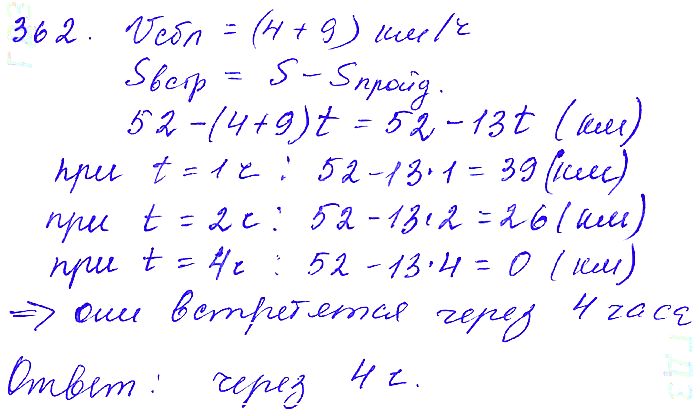 362. Vсбл = (4 + 9) км/ч
Sвстр = S - Sпройд.
52 - (4+9)t = 52 - 13t (км)
при t = 1ч : 52 - 13·1 = 39 (км)
при t = 2ч : 52 - 13·2 = 26 (км)
при t = 4ч : 52 - 13·4 = 0 (км)
=> они встретятся через 4 часа
Ответ: через 4 ч.